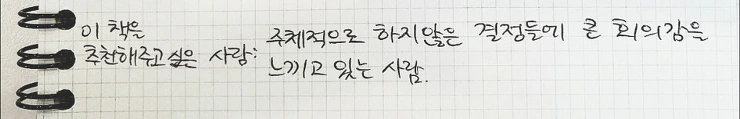 이 책을
추천해주고 싶은 사람:
주체적으로 하지않은 결정들에 큰 회의감을
느끼고 있는 사람.